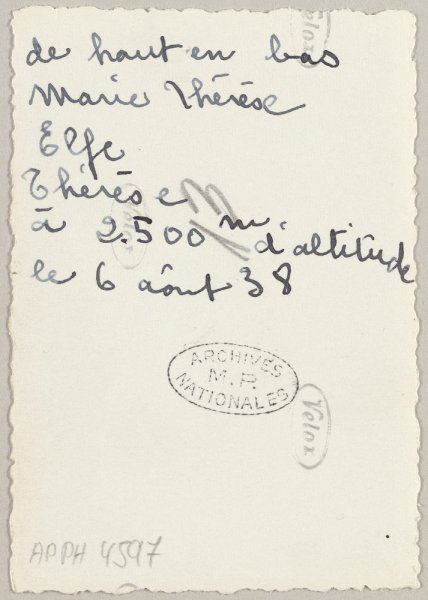 de haut en bas
Marie Thérèse
Elfe
Thérèse
à 2.500 m d'altitude
le 6 aôut 38
ARCHIVES
M.P.
NATIONALES
Velox
Velox
Velox
APPH 4597